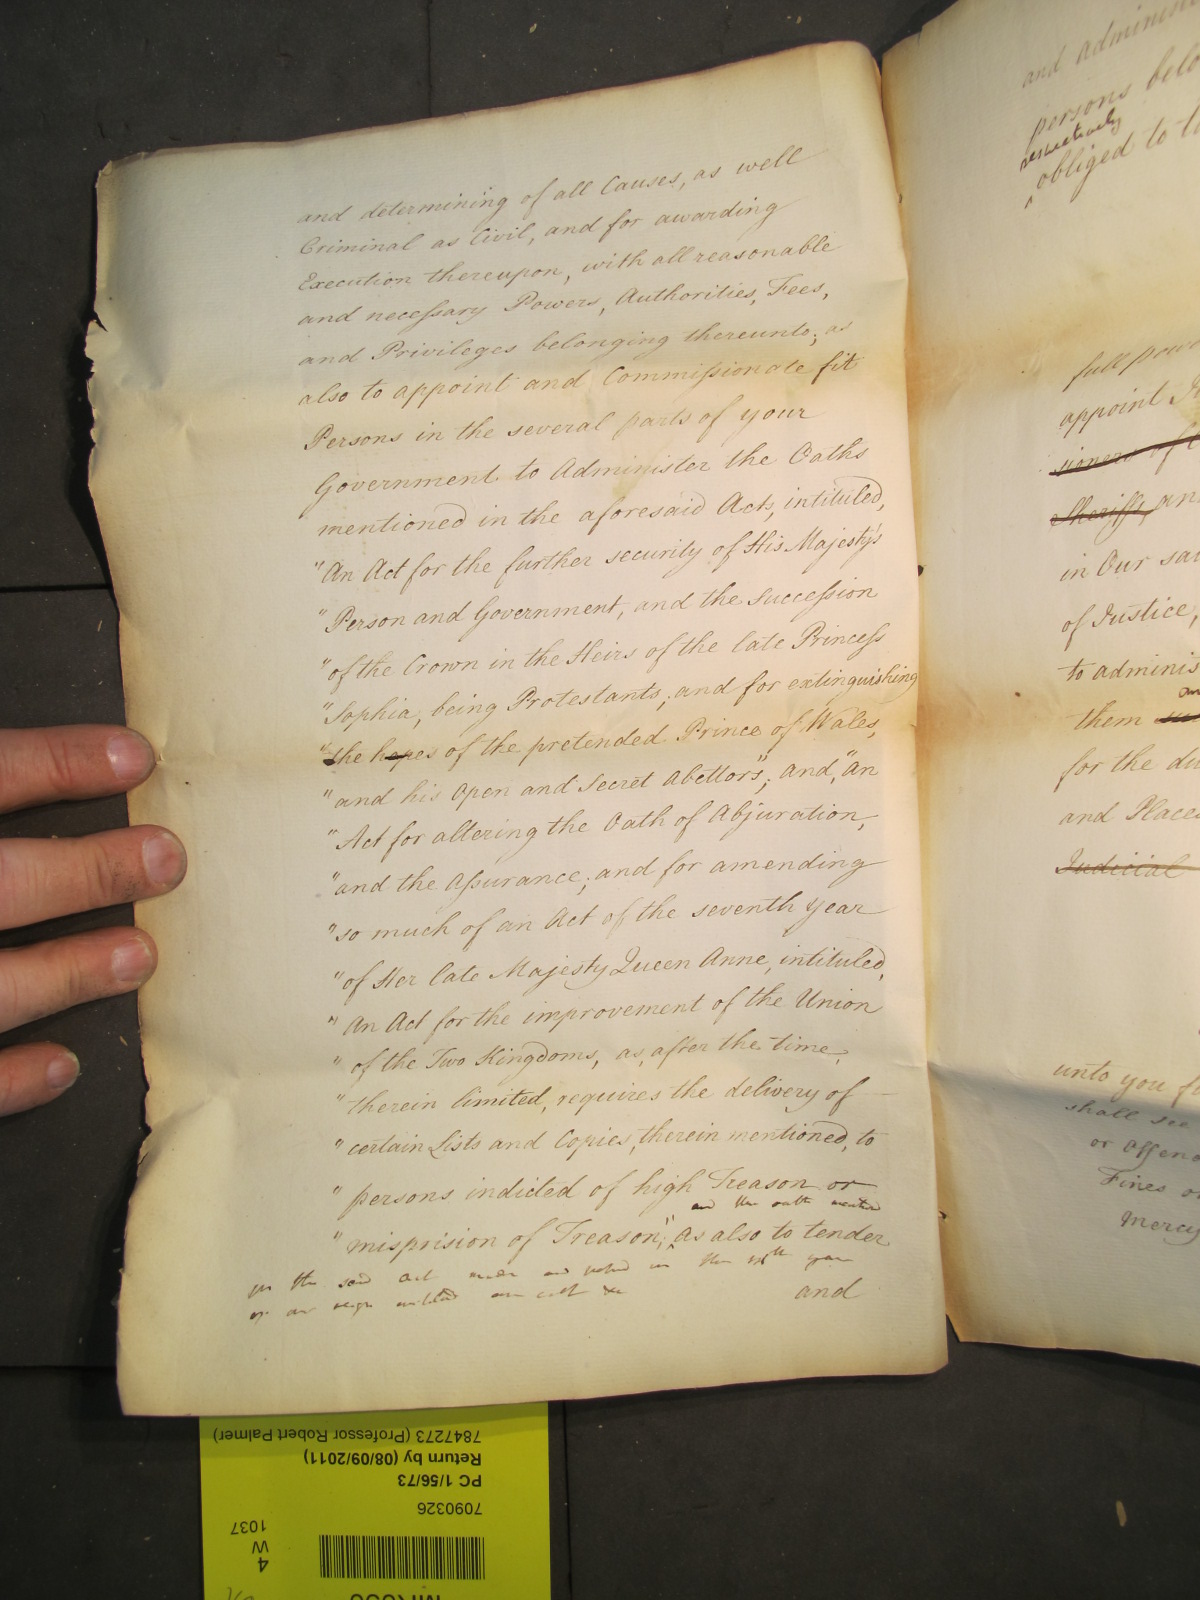 and determining of all Causes, as well
Criminal as Civil, and for awarding
Execution thereupon, with all reasonable
and necessary Powers, Authorities, Fees,
and Privileges belonging thereunto; as
also to appoint and Commissionate fit
Persons in the several parts of your
Government to Administer the Oaths
mentioned in the aforesaid Acts, intituled,
"An Act for the further security of His Majesty's
"Person and Government, and the succession
"of the Crown in the Heirs of the late Princess
"Sophia, being Protestants, and for extinguishing
"the hopes of the pretended Prince of Wales,
"and his Open and Secret Abettors"; And, "An
"Act for altering the Oath of Abjuration,
"and the Assurance; and for amending
"so much of an Act of the seventh Year
"of Her late Majesty Queen Anne, intituled,
"An Act for the improvement of the Union
"of the Two Kingdoms, as, after the time
"therein limited, requires the delivery of
"certain Lists and Copies, therein mentioned, to
"persons indicted of high Treason or
and the oath
"misprision of Treason;" As also to tender
the said act made and in the year
and
and administ
persons belo
respectively
obliged to t
full pow
appoint
sioners of
Sheriffs, an
in Our sai
of Justice,
to adminis
them
for the du
and Places
Judicial
unto you f
shall see
or Offend
Fines or
Mercy
7847273 (Professor Robert Palmer)
Return by (08/09/2011)
PC 1/56/73
7090326
4
W
1037